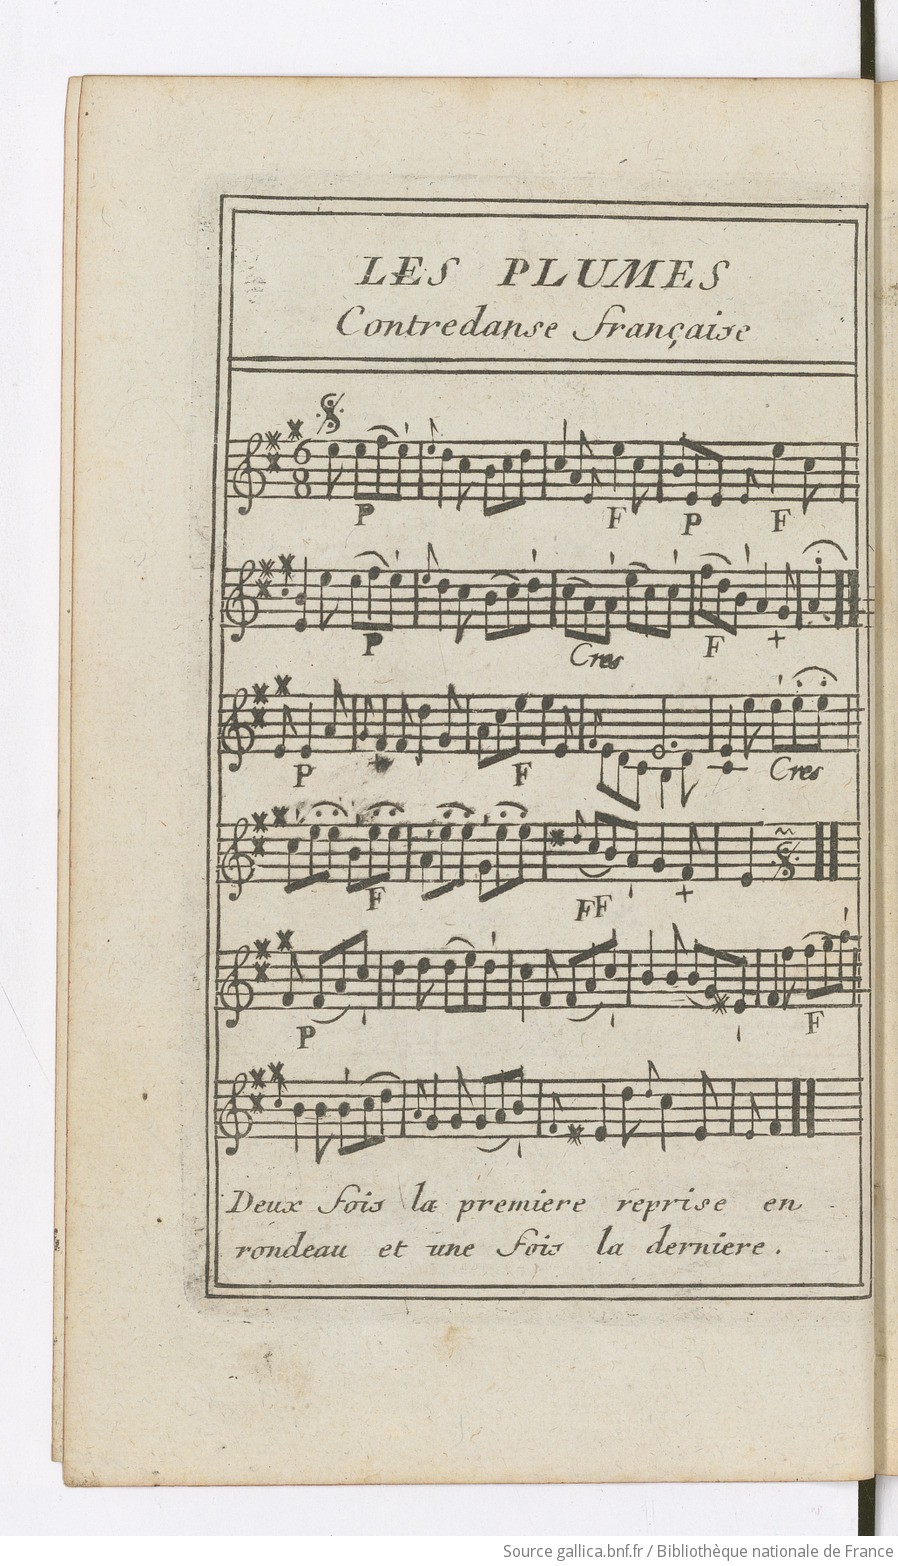 LES PLUMES
Contredanse française
6
8
P F P F
P Cres F +
P + F Cres
F FF +
P F
Deux fois la premiere reprise en
rondeau et une fois la derniere.
Source gallica.bnf.fr / Bibliothèque nationale de France